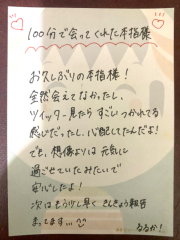 100分で会ってくれた本指様
お久しぶりの本指様！
全然会えてなかったし、
ツイッター見たらすごいつかれてる
感じだったし、心配してたんだよ！
でも、想像よりは元気に
過ごせていたみたいで
安心したよ！
次はもう少し早く きんきょう報告
まってます…
るるか！